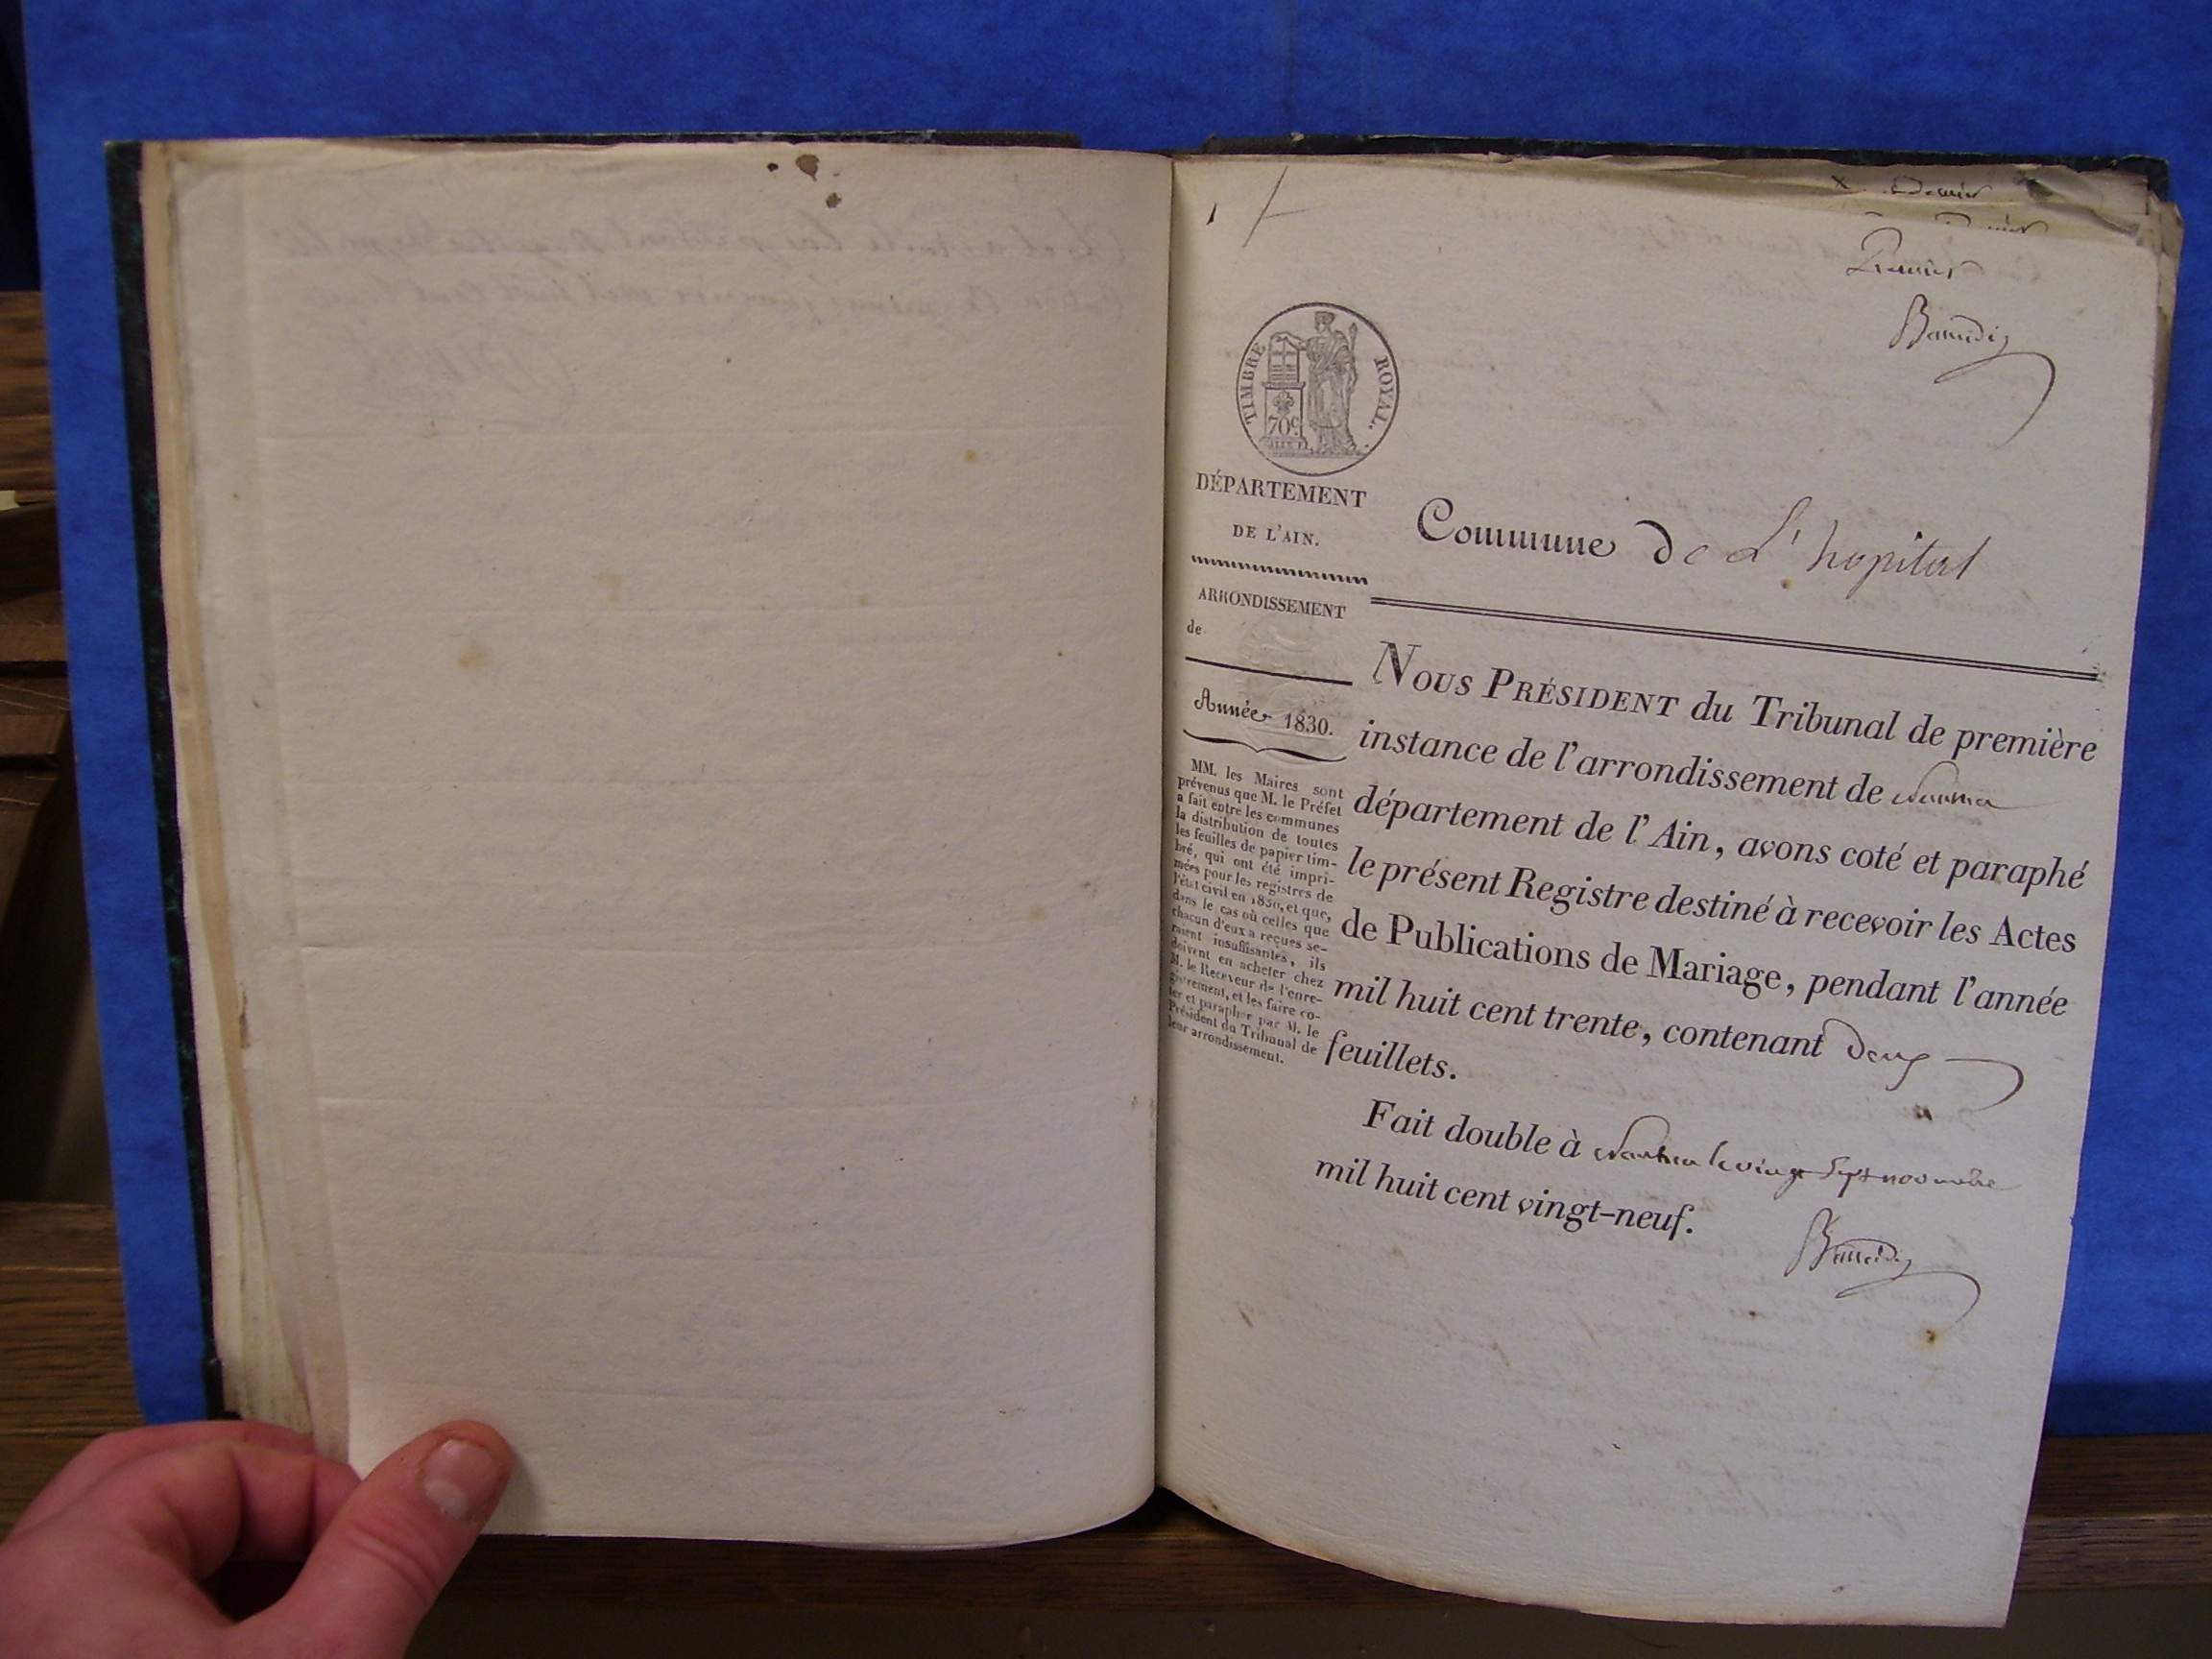 Premier
TIMBRE ROYAL.
70c
DÉPARTEMENT
DE L'AIN.
Commune de L'hopital
ARRONDISSEMENT
de
Année 1830.
MM. les Maires sont
prévenus que M. le Préfet
a fait entre les communes
la distribution de toutes
les feuilles de papier tim-
bré, qui ont été impri-
mées pour les registres de
l'état civil en 1830, et que,
dans le cas où celles que
chacun d'eux a reçues se-
raient insuffisantes, ils
doivent en acheter chez
M. le Receveur de l'enre-
gistrement, et les faire co-
ter et parapher par M. le
Président du Tribunal de
leur arrondissement.
NOUS PRÉSIDENT du Tribunal de première
instance de l'arrondissement de Nantua
département de l'Ain, avons coté et paraphé
le présent Registre destiné à recevoir les Actes
de Publications de Mariage, pendant l'année
mil huit cent trente, contenant deux
feuillets.
Fait double à Nantua le vingt sept novembre
mil huit cent vingt-neuf.